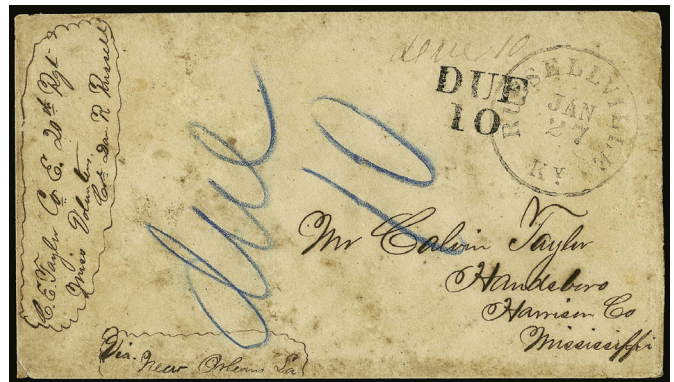 C. E. Taylor Co. E. 20th Rgt
Miss Volunteers.
Col. Dan R Russell
due 10
DUE
10
RUSSELLVILLE
JAN
27
KY.
due
10
Mr Calvin Taylor
Handsboro
Harrison Co
Mississippi
Via.
New Orleans La.